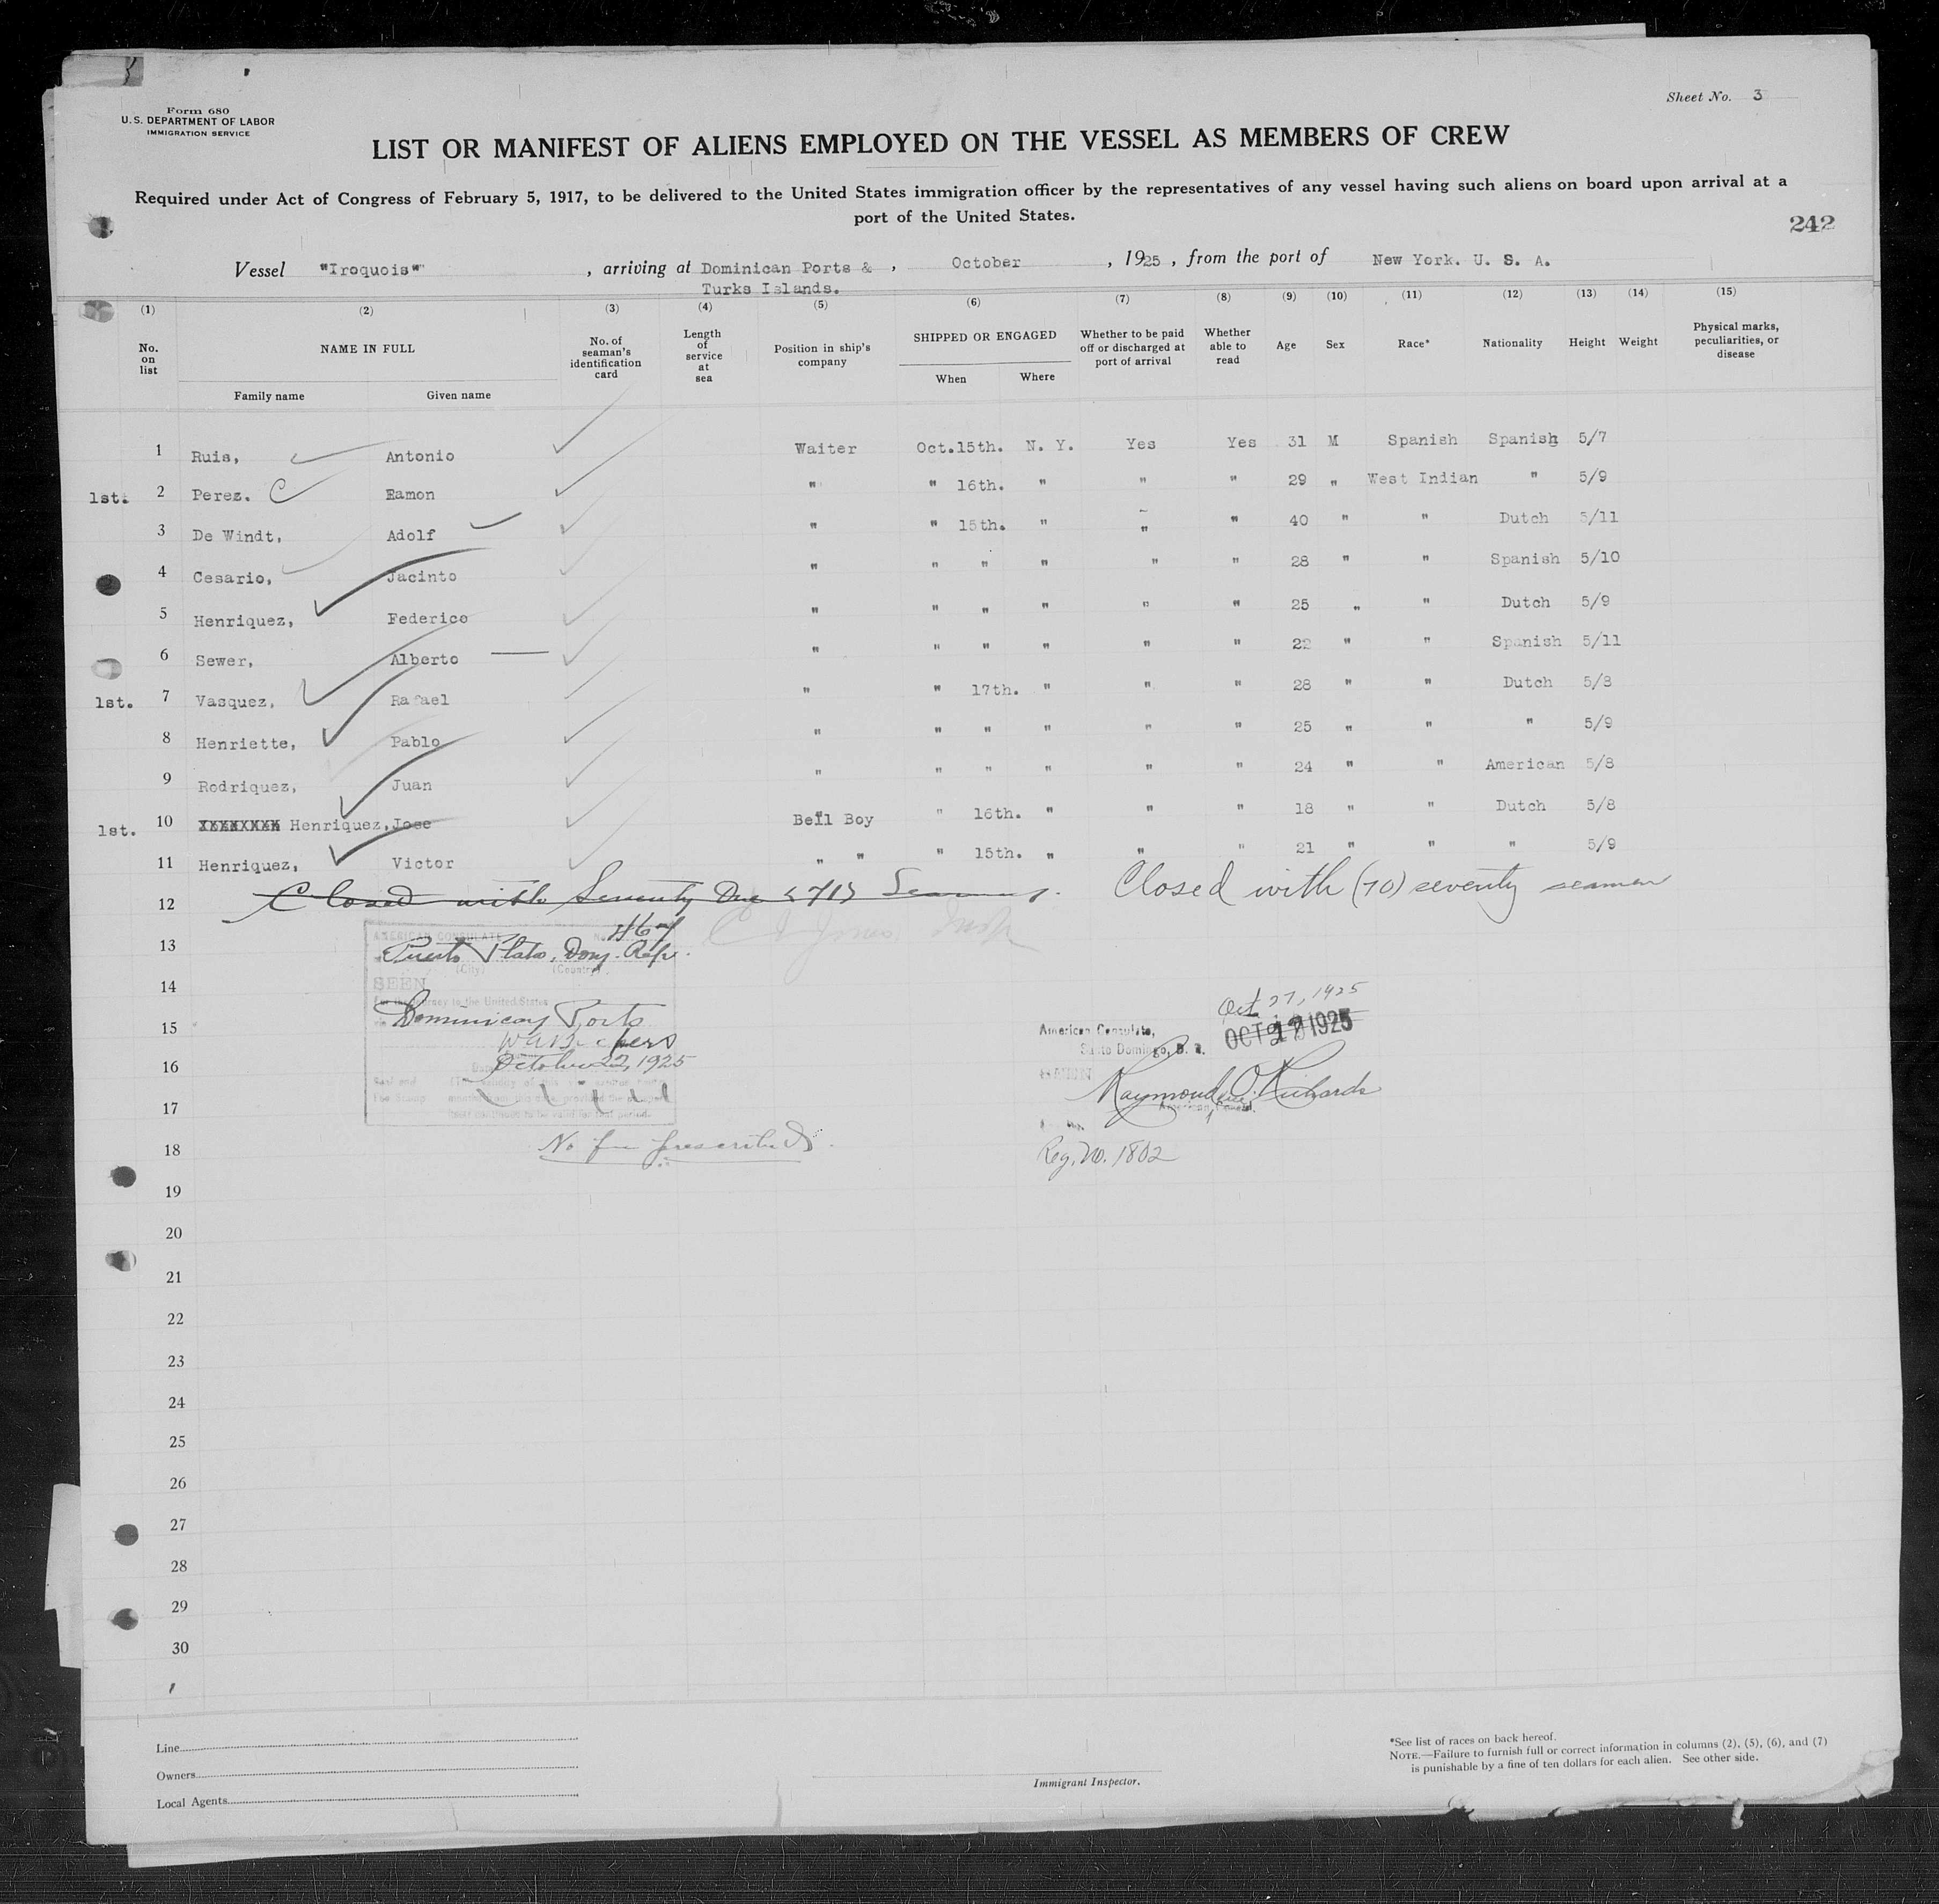 Form 680
U. S. DEPARTMENT OF LABOR
IMMIGRATION SERVICE
Sheet No. 3
LIST OR MANIFEST OF ALIENS EMPLOYED ON THE VESSEL AS MEMBERS OF CREW
Required under Act of Congress of February 5, 1917, to be delivered to the United States immigration officer by the representatives of any vessel having such aliens on board upon arrival at a
port of the United States.
242
Vessel "Iroquois" , arriving at Dominican Ports & , October , 1925 , from the port of New York. U. S. A.
Turks Islands.
(1) (2) (3) (4) (5) (6) (7) (8) (9) (10) (11) (12) (13) (14) (15)
No. on list NAME IN FULL No. of seaman's identification card Length of service at sea Position in ship's company SHIPPED OR ENGAGED Whether to be paid off or discharged at port of arrival Whether able to read Age Sex Race* Nationality Height Weight Physical marks, peculiarities, or disease
Family name Given name When Where
1 Ruis, Antonio Waiter Oct.15th. N. Y. Yes Yes 31 M Spanish Spanish 5/7
1st. 2 Perez. C Ramon " " 16th. " " " 29 " West Indian " 5/9
3 De Windt, Adolf " " 15th. " " " 40 " " Dutch 5/11
4 Cesario, Jacinto " " " " " " 28 " " Spanish 5/10
5 Henriquez, Federico " " " " " " 25 " " Dutch 5/9
6 Sewer, Alberto " " " " " " 22 " " Spanish 5/11
1st. 7 Vasquez, Rafael " " 17th. " " " 28 " " Dutch 5/8
8 Henriette, Pablo " " " " " " 25 " " " 5/9
9 Rodriquez, Juan " " " " " " 24 " " American 5/8
1st. 10 XXXXXXXX Henriquez, Jose Bell Boy " 16th. " " " 18 " " Dutch 5/8
11 Henriquez, Victor " " " 15th. " " " 21 " " " 5/9
12 Closed with Seventy One (71) Seamen. Closed with (70) seventy seamen
AMERICAN CONSULATE No. 467
13 Puerto Plata, Dom. Rep.
(City) (Country)
14 SEEN
For the journey to the United States
Oct 27, 1925
15 Dominican Ports
American Consulate, OCT 27 1925
Santo Domingo, D. R.
16 October 22, 1925
Raymond O. Richards
17
18 No fee prescribed.
Reg. No. 1802
19
20
21
22
23
24
25
26
27
28
29
30
Line
Owners
Local Agents
Immigrant Inspector.
*See list of races on back hereof.
NOTE.—Failure to furnish full or correct information in columns (2), (5), (6), and (7)
is punishable by a fine of ten dollars for each alien. See other side.